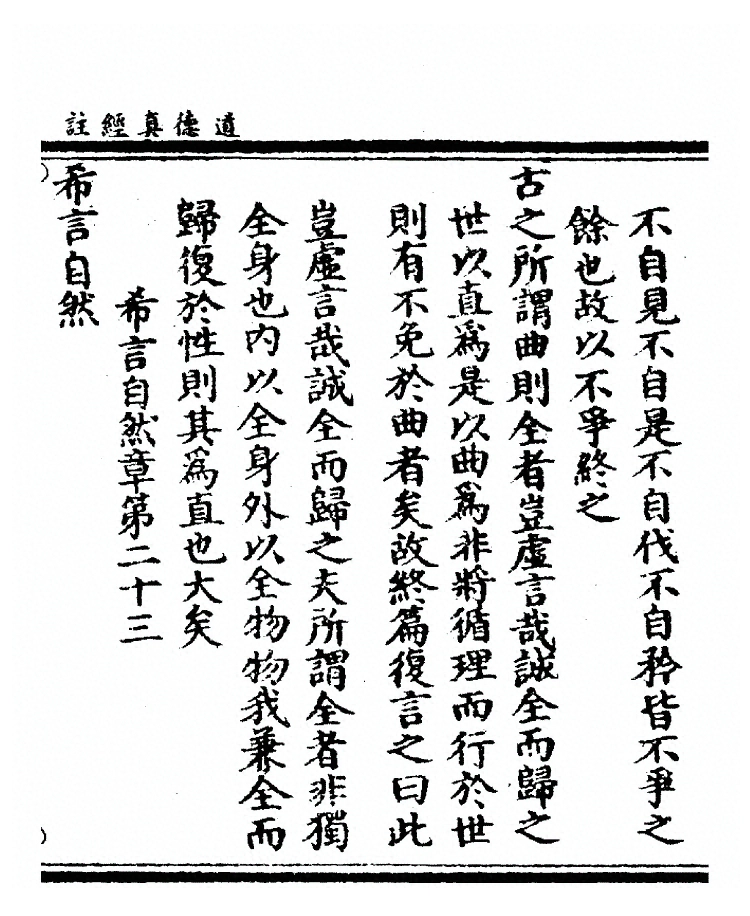 道德真經註
不自見不自是不自伐不自矜皆不爭之
餘也故以不爭終之
古之所謂曲則全者豈虛言哉誠全而歸之
世以直爲是以曲爲非將循理而行於世
則有不免於曲者矣故終篇復言之曰此
豈虛言哉誠全而歸之夫所謂全者非獨
全身也內以全身外以全物物我兼全而
歸復於性則其爲直也大矣
希言自然章第二十三
希言自然